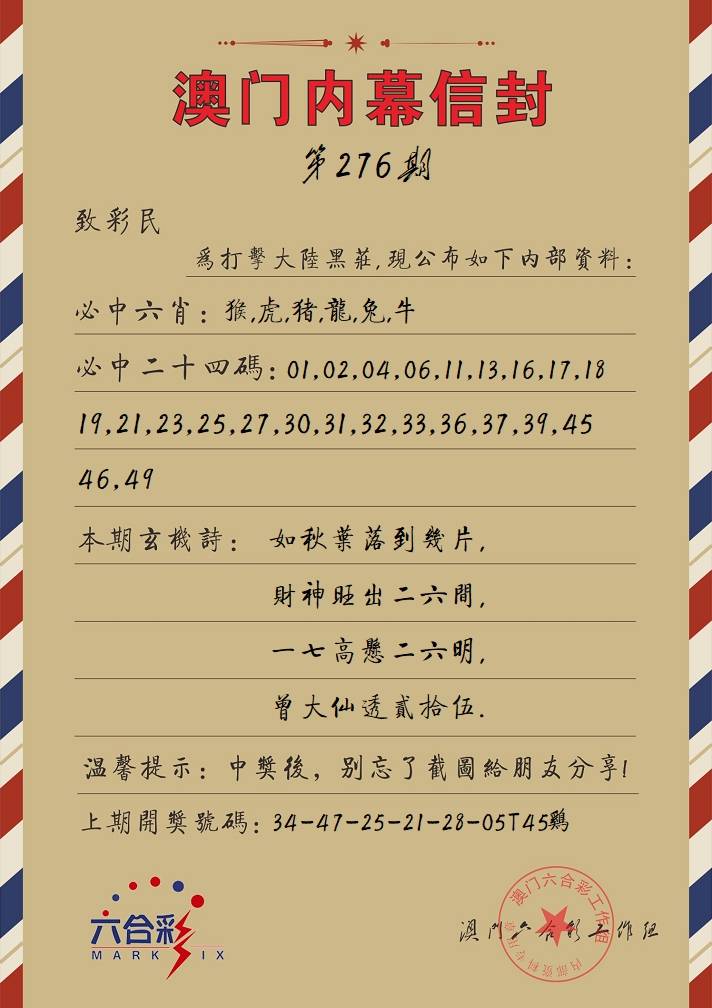 澳门内幕信封
第276期
致彩民
爲打擊大陸黑莊,現公布如下内部資料:
必中六肖: 猴,虎,猪,龍,兔,牛
必中二十四碼: 01,02,04,06,11,13,16,17,18
19,21,23,25,27,30,31,32,33,36,37,39,45
46,49
本期玄機詩: 如秋葉落到幾片,
財神旺出二六間,
一七高懸二六明,
曾大仙透貳拾伍.
温馨提示: 中獎後, 别忘了截圖給朋友分享!
上期開獎號碼: 34-47-25-21-28-05T45鷄
六合彩
MARK SIX
澳门六合彩工作组
澳门六合彩工作组
内部资料专用章